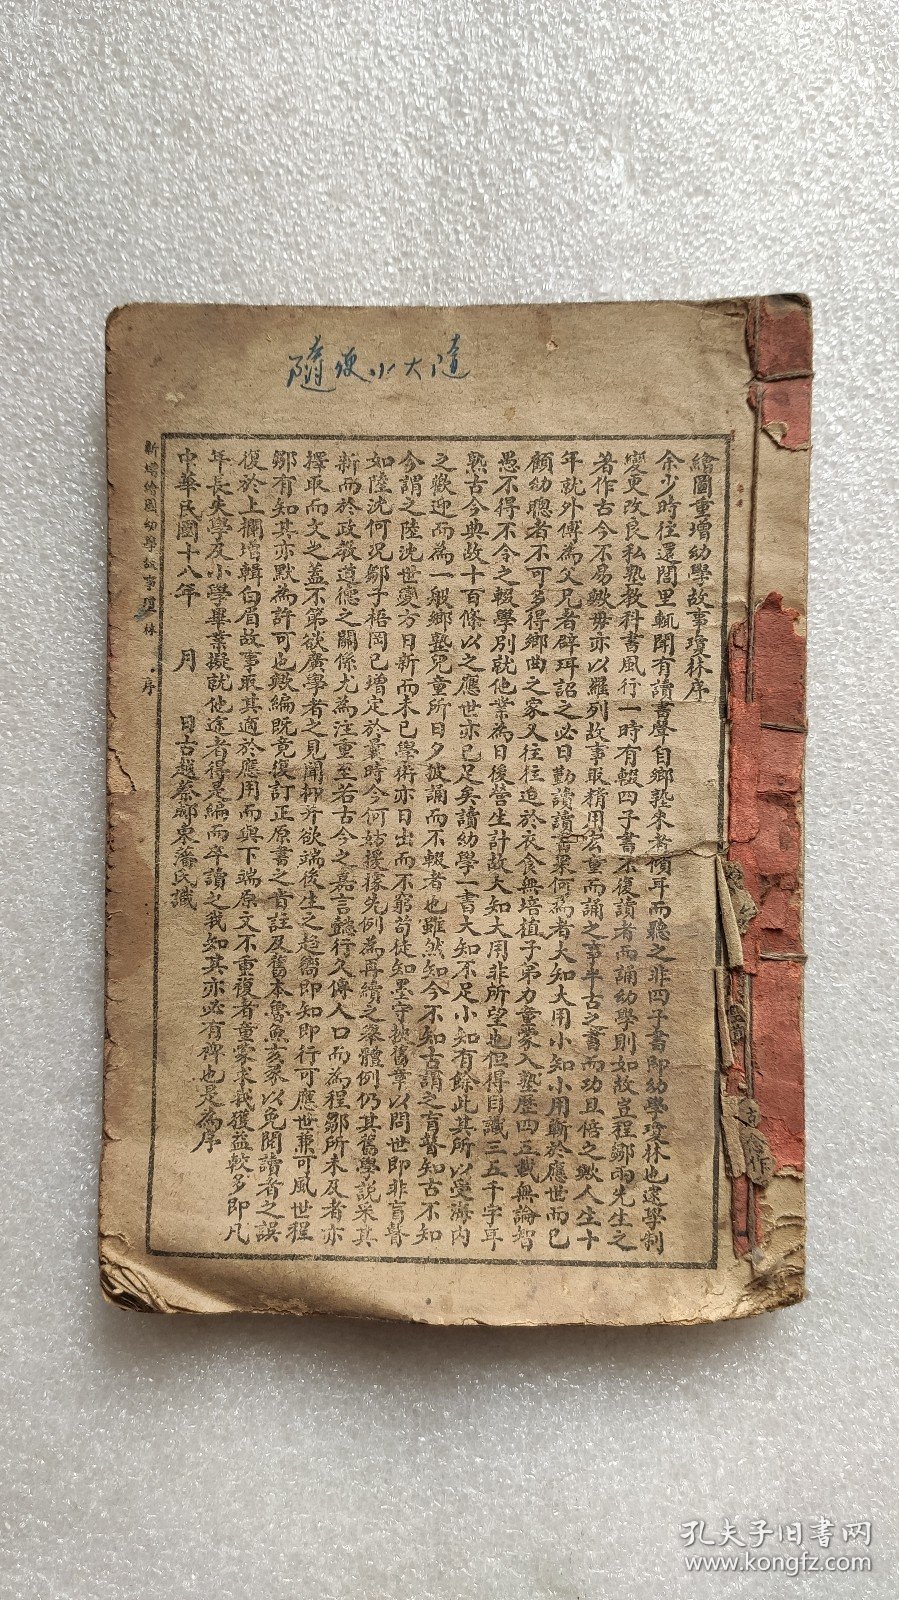 隨便小大隨
繪圖重增幼學故事瓊林序
余少時往還閭里輒聞有讀書聲自鄉塾來者傾耳而聽之非四子書即幼學瓊林也逮學制
變更改良私塾教科書風行一時有輟四子書不復讀者而誦幼學則如故豈程鄒兩先生之
著作古今不易歟毋亦以羅列故事取精用宏童而誦之事半古之書而功且倍之歟人生十
年就外傅為父兄者辟珥詔之必曰勤讀讀書果何為者大知大用小知小用蘄於應世而已
顧幼聰者不可多得鄉曲之家又往往迫於衣食無培植子弟力童蒙入塾歷四五載無論智
愚不得不令之輟學別就他業為日後營生計故大知大用非所望也但得目識三五千字耳
熟古今典故十百條以之應世亦已足矣讀幼學一書大知不足小知有餘此其所以受海內
之歡迎而為一般鄉塾兒童所日夕披誦而不輟者也雖然知今不知古謂之盲瞽知古不知
今謂之陸沈世變方日新而未已學術亦日出而不窮苟徒知墨守挾舊章以問世即非盲瞽
如陸沈何況鄒子梧岡已增定於曩時今何妨援樣先例為再續之舉體例仍其舊學說采其
新而於政教道德之關係尤為注重至若古今之嘉言懿行久傳人口而為程鄒所未及者亦
擇取而文之蓋不第欲廣學者之見聞抑并欲端後生之趨嚮即知即行可應世兼可風世程
鄒有知其亦默為許可也歟編既竟復訂正原書之音註及舊本魯魚亥豕以免閱讀者之誤
復於上欄增輯白眉故事取其適於應用而與下端原文不重複者童蒙求我獲益較多即凡
年長失學及小學畢業擬就他途者得是編而卒讀之我知其亦必有裨也是為序
中華民國十八年 月 日古越蔡鄉東潘氏識
新增繪圖幼學故事瓊林 序
孔夫子旧书网
www.kongfz.com